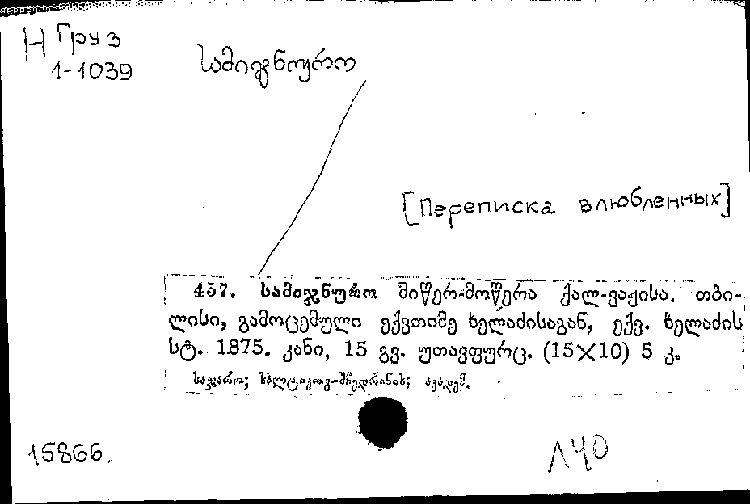 Н Груз
1-1039
სამიჯნურო
[Переписка влюбленных]
457. სამიჯნურო მიწერ-მოწერა ქალ-ვაჟისა. თბი-
ლისი, გამოცემული ექვთიმე ხელაძისაგან, ექვ. ხელაძის
სტ. 1875. კანი, 15 გვ. უთავფურც. (15×10) 5 კ.
საჯარო; სალტიკოვ-შჩედრინის; აკადემ.
15866.
ЛЧО